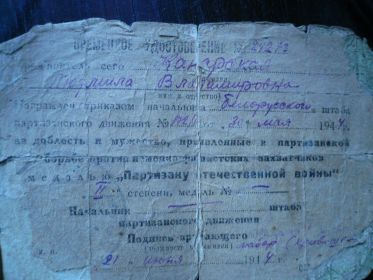 ВРЕМЕННОЕ УДОСТОВЕРЕНИЕ №
сего
Людмила Владимировна
приказом начальника Белорусского штаба
партизанского движения № от 30 мая 1944 г.
за доблесть и мужество, проявленные в партизанской
борьбе против немецко-фашистских захватчиков
медалью „Партизану отечественной войны"
II степени, медаль №
Начальник штаба
партизанского движения
Подпись
21 июня 1944 г. майор